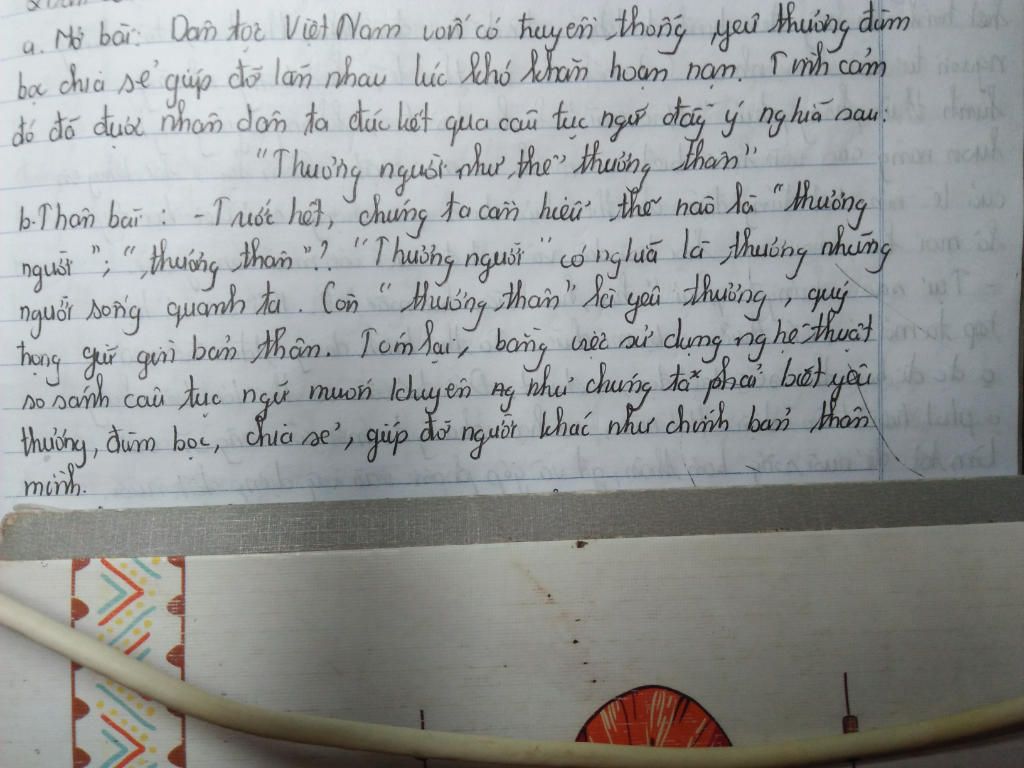 a. Mở bài: Dân tộc Việt Nam vốn có truyền thống yêu thương đùm
bọc chia sẻ giúp đỡ lẫn nhau lúc khó khăn hoạn nạn. Tình cảm
đó đã được nhân dân ta đúc kết qua câu tục ngữ đầy ý nghĩa sau:
"Thương người như thể thương thân"
b. Thân bài : - Trước hết, chúng ta cần hiểu thế nào là "thương
người"; "thương thân"? "Thương người" có nghĩa là thương những
người sống quanh ta. Còn "thương thân" là yêu thương, quý
trọng giữ gìn bản thân. Tóm lại, bằng việc sử dụng nghệ thuật
so sánh câu tục ngữ muốn khuyên như chúng ta phải biết yêu
thương, đùm bọc, chia sẻ, giúp đỡ người khác như chính bản thân
mình.